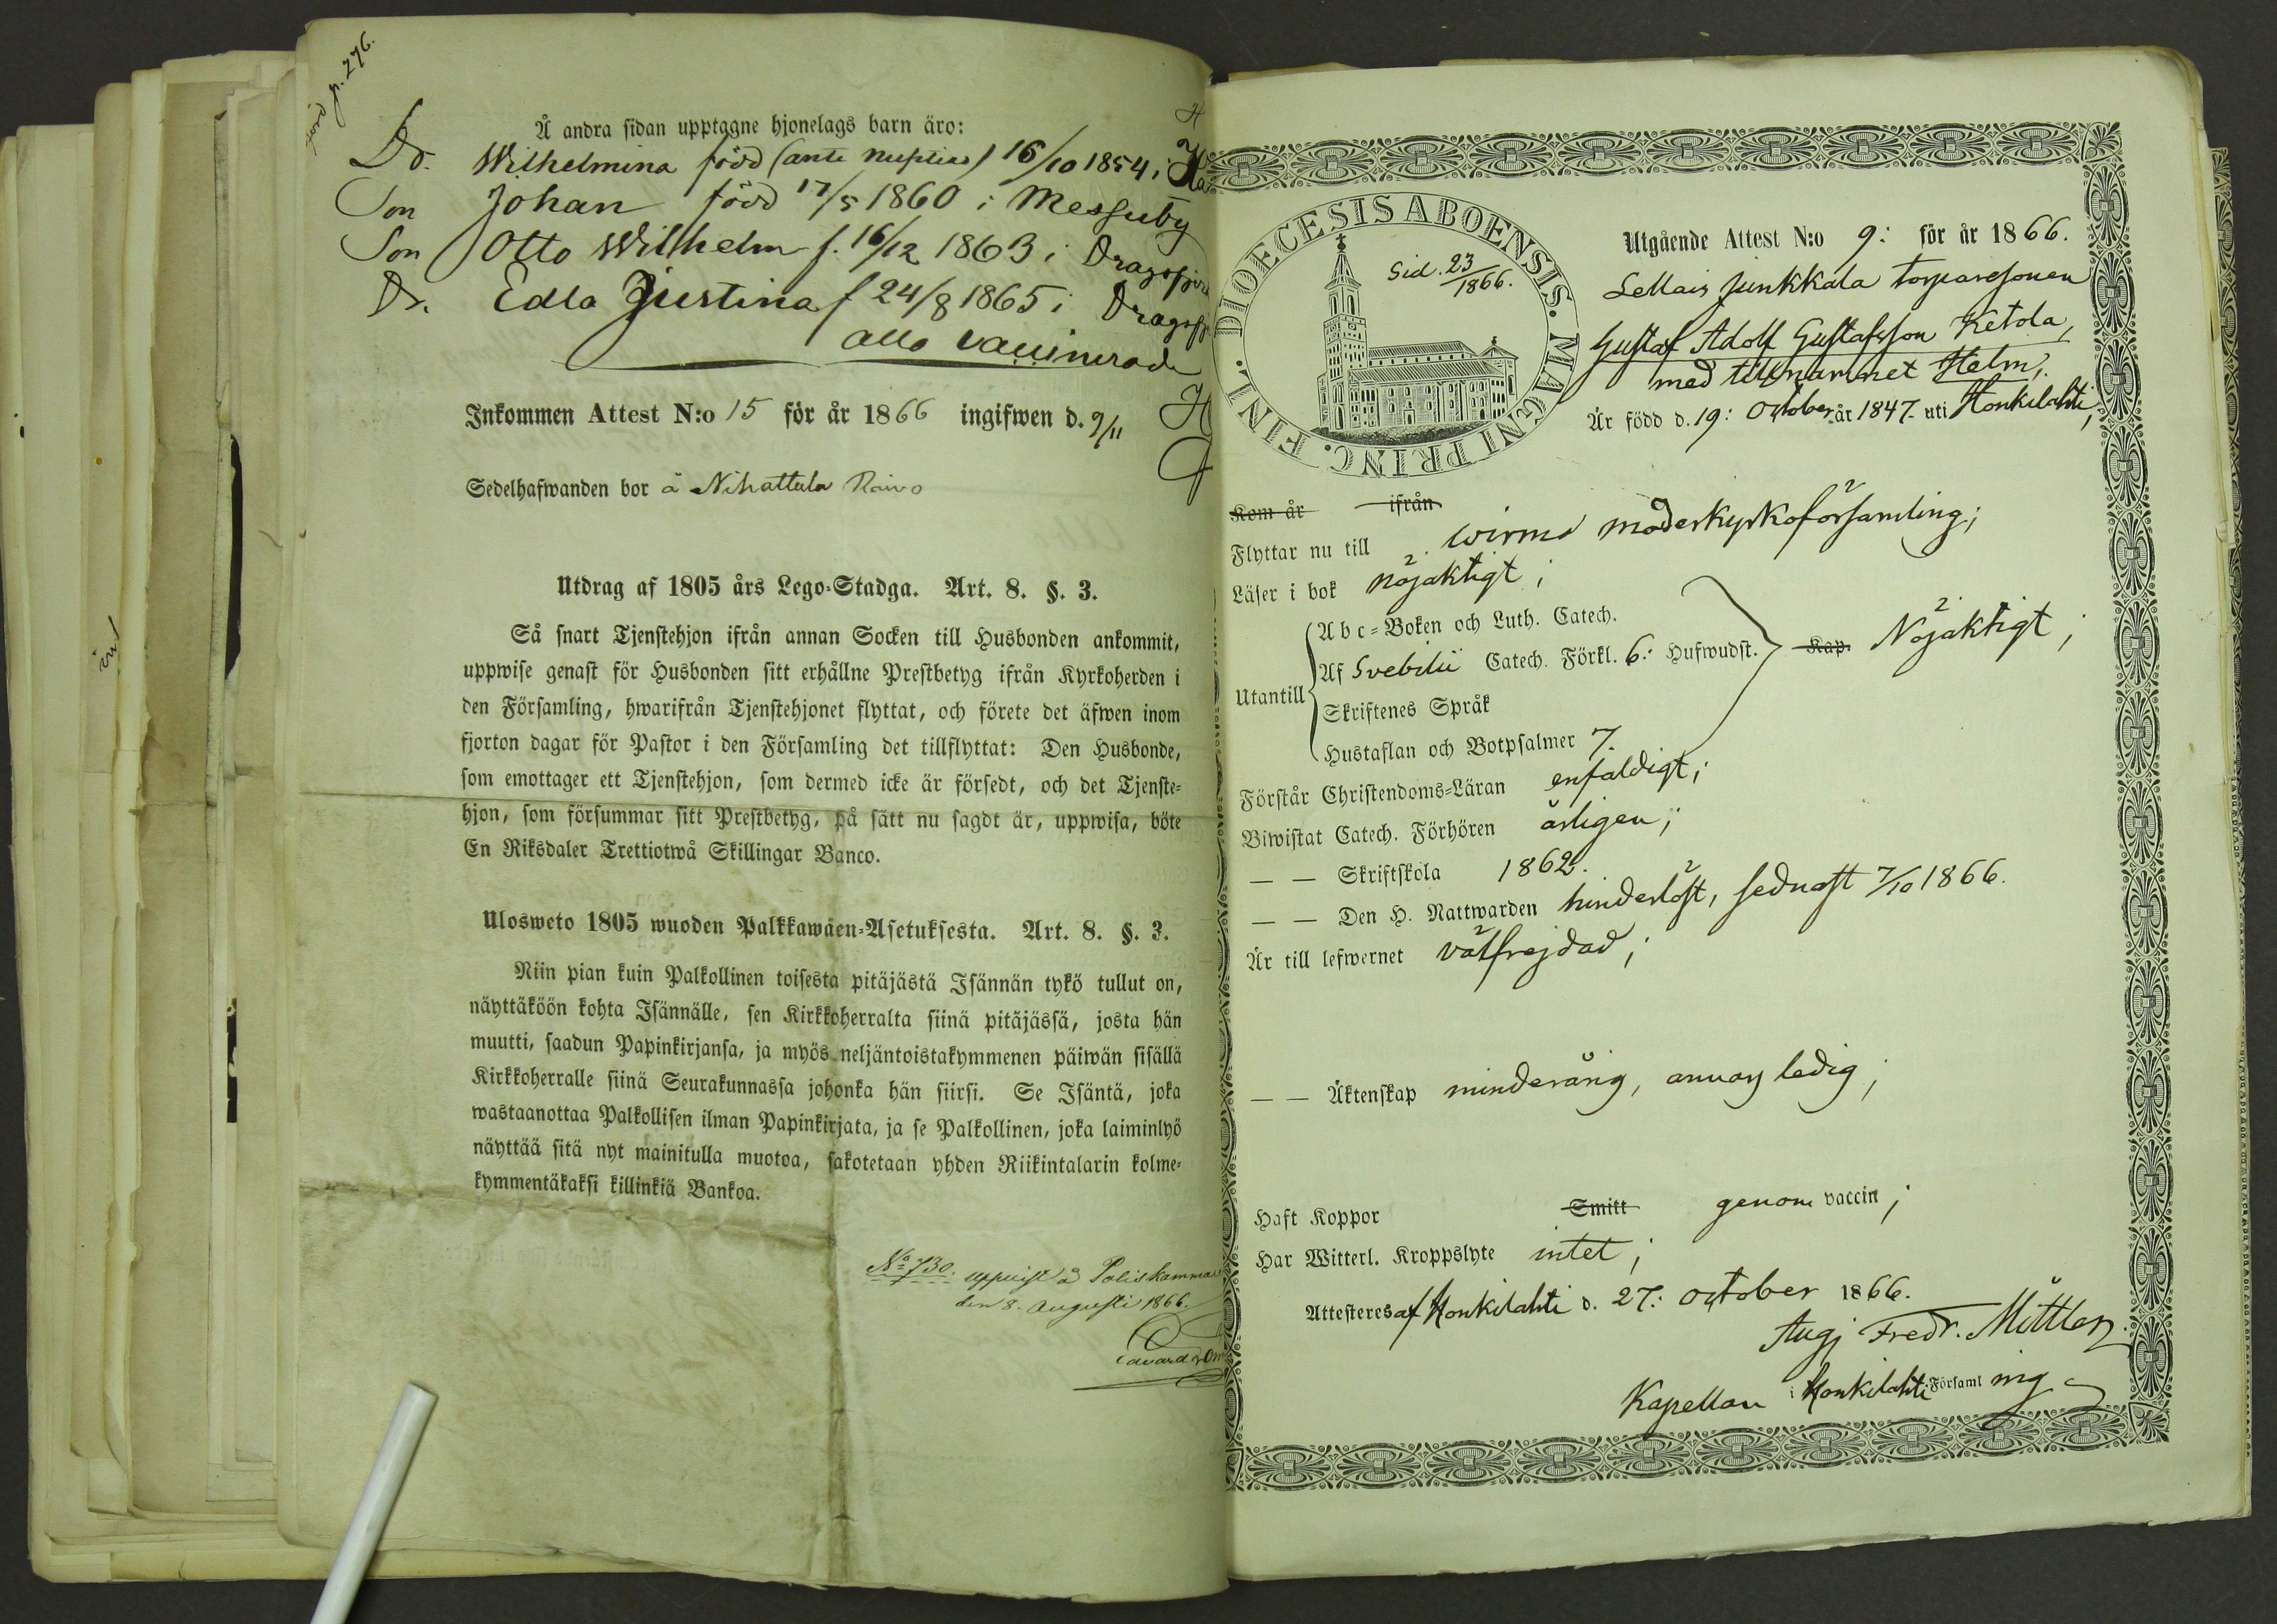 förd p. 276.
Å andra sidan upptagne hjonelags barn äro:
Dr. Wilhelmina född (ante nuptias) 16/10 1854 i
Son Johan född 17/5 1860 i Messuby
Son Otto Wilhelm f. 16/12 1863 i Dragsfj
Dr. Edla Justina f 24/8 1865 i Dragsfj
alla vaccinerade
Inkommen Attest N:o 15 för år 1866 ingifwen d. 9/11
Sedelhafwanden bor å Nihattula
Utdrag af 1805 års Lego-Stadga. Art. 8. §. 3.
Så snart Tjenstehjon ifrån annan Socken till Husbonden ankommit,
uppwise genast för Husbonden sitt erhållne Prestbetyg ifrån Kyrkoherden i
den Församling, hwarifrån Tjenstehjonet flyttat, och förete det äfwen inom
fjorton dagar för Pastor i den Församling det tillflyttat: Den Husbonde,
som emottager ett Tjenstehjon, som dermed icke är försedt, och det Tjenste-
hjon, som försummar sitt Prestbetyg, på sätt nu sagdt är, uppwisa, böte
En Riksdaler Trettiotwå Skillingar Banco.
Ulosweto 1805 wuoden Palkkawäen-Asetuksesta. Art. 8. §. 3.
Niin pian kuin Palkollinen toisesta pitäjästä Isännän tykö tullut on,
näyttäköön kohta Isännälle, sen Kirkkoherralta siinä pitäjässä, josta hän
muutti, saadun Papinkirjansa, ja myös neljäntoistakymmenen päiwän sisällä
Kirkkoherralle siinä Seurakunnassa johonka hän siirsi. Se Isäntä, joka
wastaanottaa Palkollisen ilman Papinkirjata, ja se Palkollinen, joka laiminlyö
näyttää sitä nyt mainitulla muotoa, sakotetaan yhden Riikintalarin kolme-
kymmentäkaksi killinkiä Bankoa.
No 730. uppvist å Poliskammar
den 8. Augusti 1866.
Edvard
DIOECESIS ABOENSIS. MAGNI PRINC. FINL.
Sid. 23/1866.
Utgående Attest N:o 9: för år 1866.
Sellais Junkkala torparesonen
Gustaf Adolf Gustafsson Ketola,
med tillnamnet Helm,
Är född d. 19: October år 1847. uti Honkilahti;
Kom år ifrån
Flyttar nu till Wirmo moderkyrkoförsamling;
Läser i bok nöjaktigt;
Utantill
Abc-Boken och Luth. Catech.
Af Svebilii Catech. Förkl. 6: Hufwudst. Kap. Nöjaktigt;
Skriftenes Språk
Hustaflan och Botpsalmer 7.
Förstår Christendoms-Läran enfaldigt;
Biwistat Catech. Förhören årligen;
— — Skriftskola 1862.
— — Den H. Nattwarden hinderlöst, sednast 7/10 1866.
Är till lefwernet välfrejdad;
— — Äktenskap minderårig, annars ledig;
Haft Koppor Smitt genom vaccin;
Har Witterl. Kroppslyte intet;
Attesteres af Honkilahti d. 27: October 1866.
Aug. Fredr. Mittler
Kapellan i Honkilahti Församl ing